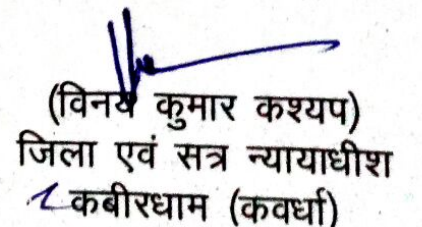 (विनय कुमार कश्यप)
जिला एवं सत्र न्यायाधीश
कबीरधाम (कवर्धा)